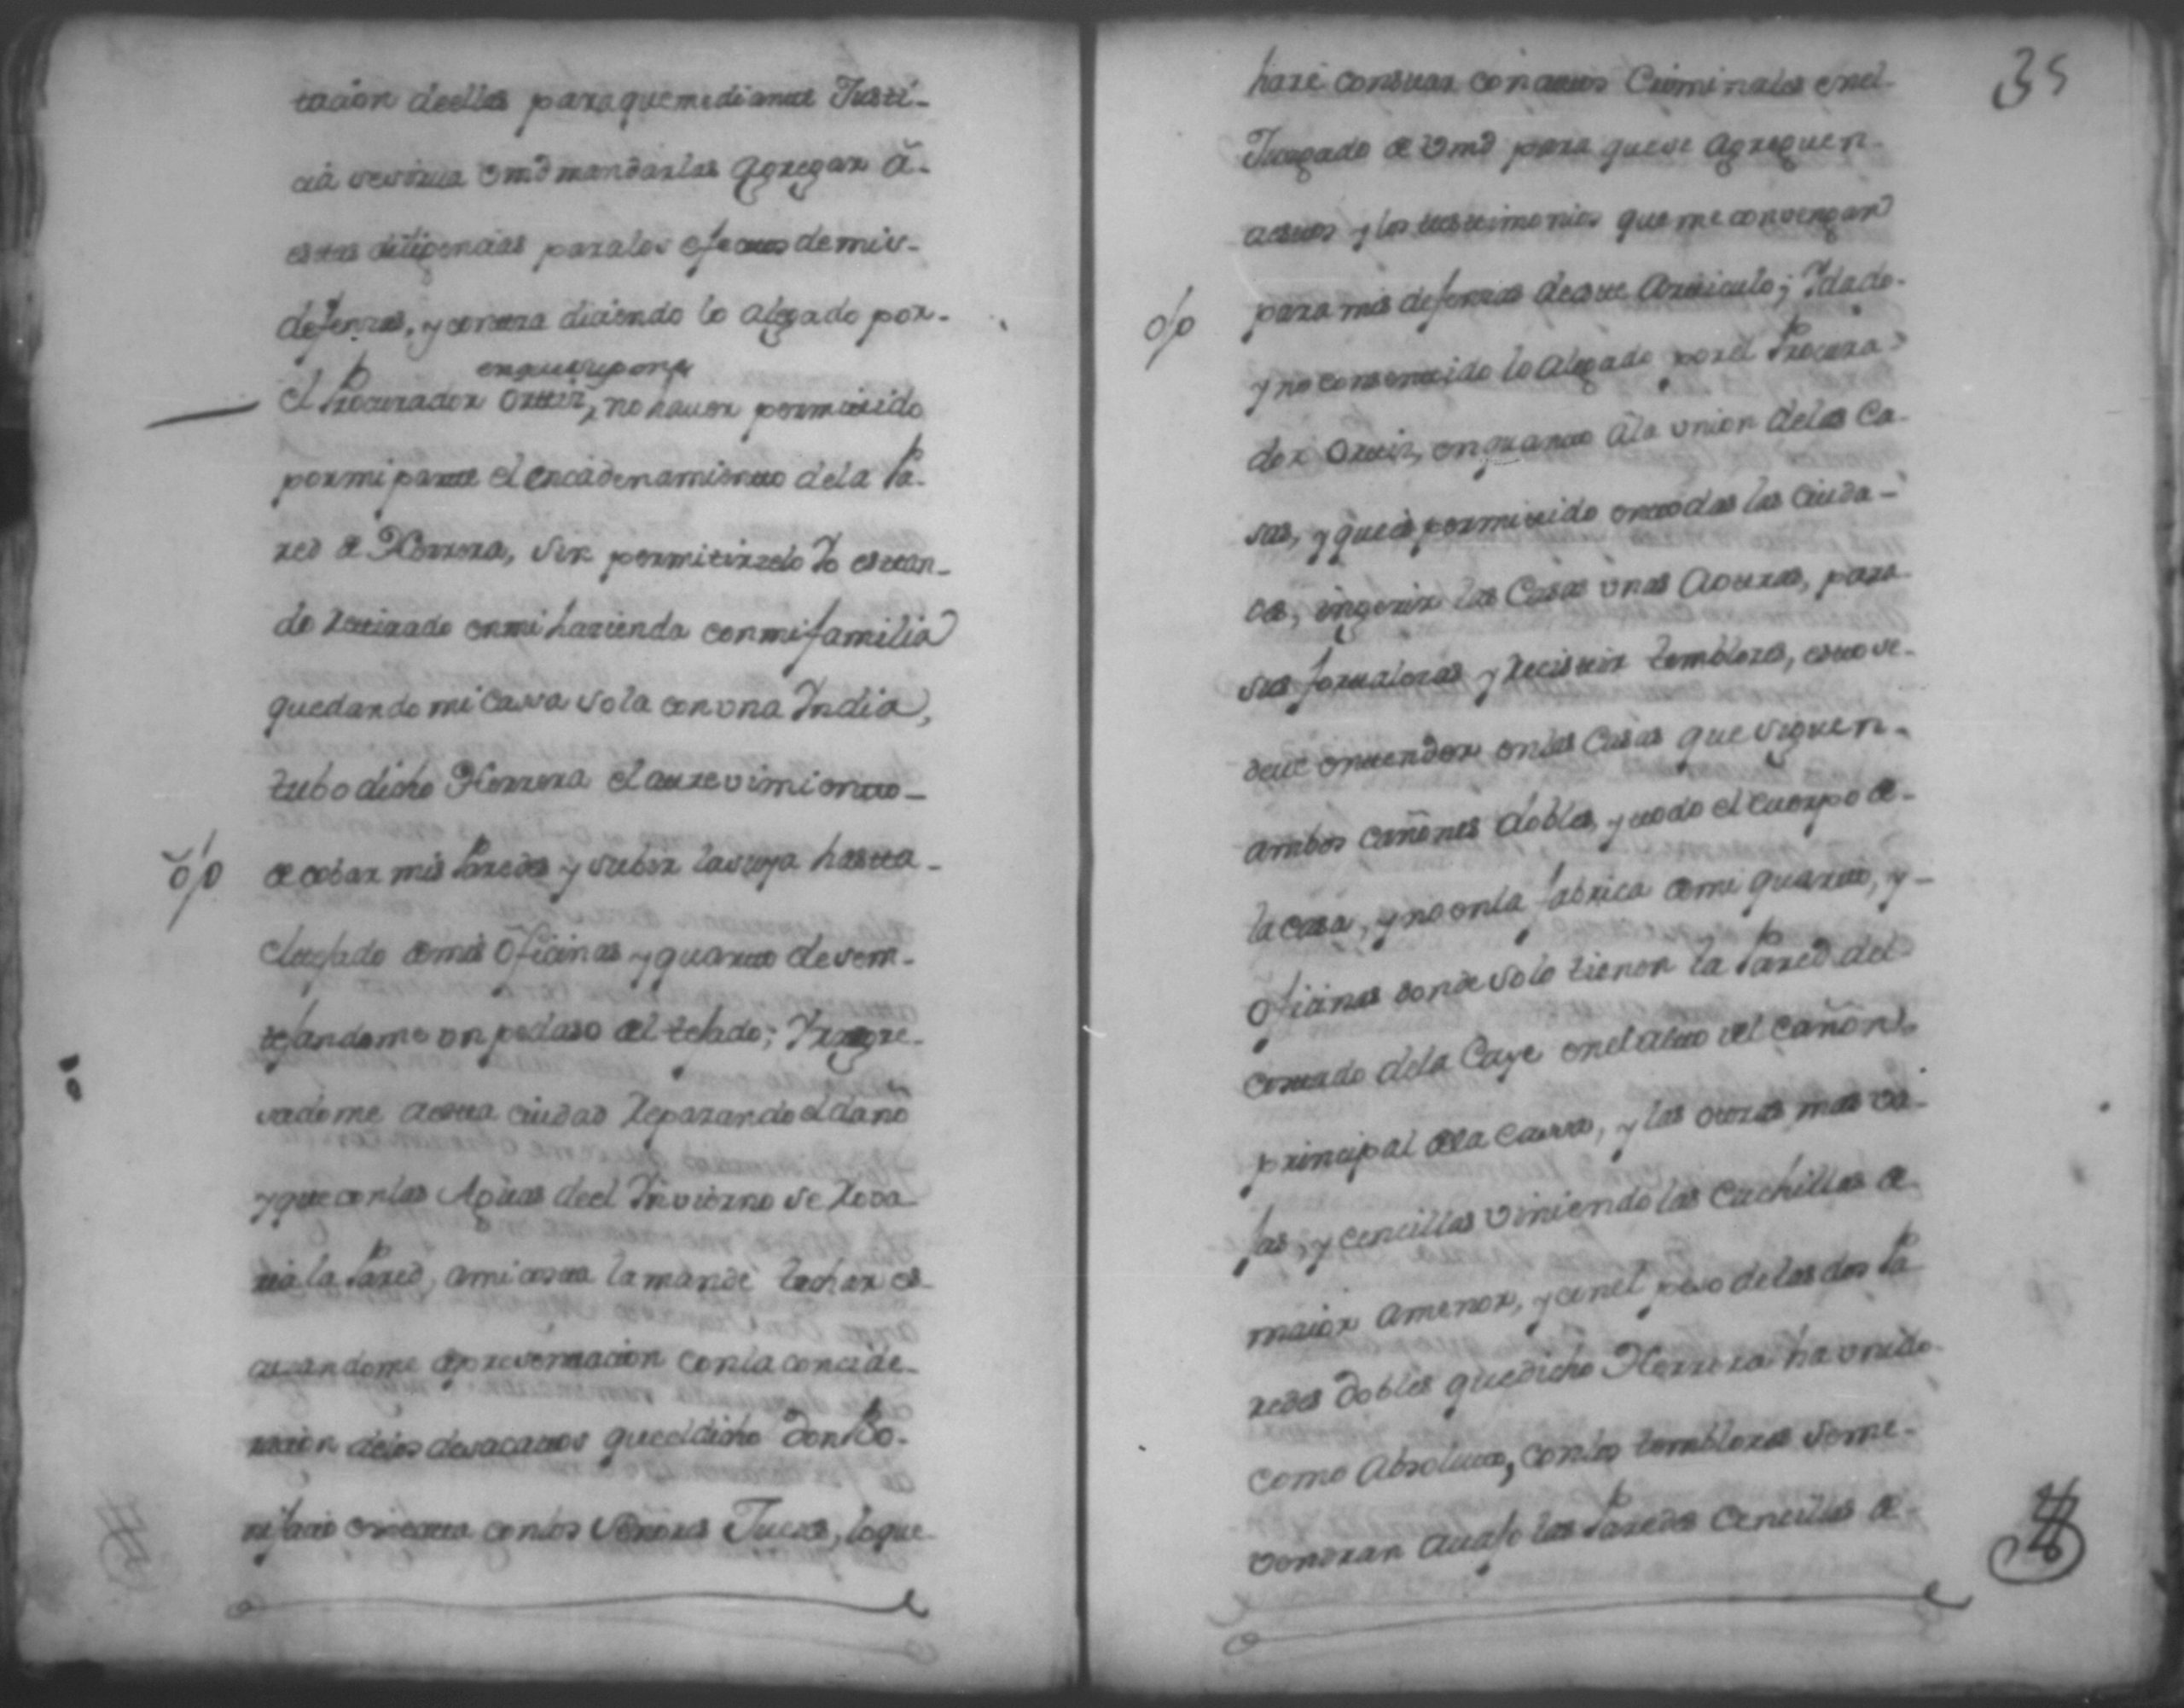 tacion deellas paraquemediante Justi-
cia sesirva Vmd mandarlas agregar â-
estas diligencias paralos efectos demis-
defenzas, y contra diciendo lo alegado por-
enquesupone
el Procurador Ortiz, no haver permitido
pormiparte el encadenamiento dela Pa-
red de Herrera, sin permitirzelo Yo estan-
do retirado enmi hazienda conmifamilia
quedando mi Cassa sola conuna India,
tubo dicho Herrera el atrevimiento-
o/o de cobar mis Paredes y subir lasuya hasta-
eltejado demis Oficinas y quarto desem-
tejandome un pedaso del tejado; Yregre-
sadome aesta ciudad reparando eldaño
y quecon las Aguas deel Invierno se rova
ria la Pared, amicosta lamandé techar es-
cusandome depresentacion conla concide-
racion delos desacatos queeldicho Don Bo-
nifacio comete conlos Señores Jueces, loque
35
haré constar con autos Criminales enel-
Juzgado de Vmd para quese agreguen-
aestos y los testimonios que me convengan
o/o para mis defenzas deeste Articulo; Ydado-
y no consentido lo alegado porel Procura
dor Ortiz, enquanto âla union delas Ca-
sas, y quees permitido entodas las Ciuda-
des, ingerir las Casas unas aotras, para
sus fortalezas y recistir temblores, estose-
deve entender enlas Casas que siguen-
ambos cañones dobles, y todo el cuerpo de-
la casa, y no enla fabrica demi quarto, y-
Oficinas donde solo tienen la Pared del
costado dela Caye enel alto del Cañon
principal dela Cassa, y las otras mas va-
jas, y cencillas viniendo las Cuchillas de
maior amenor, y conel peso delas dos Pa
redes dobles quedicho Herrera ha unido
como absoluto, conlos temblores seme-
vendran auajo las Paredes Cencillas de-